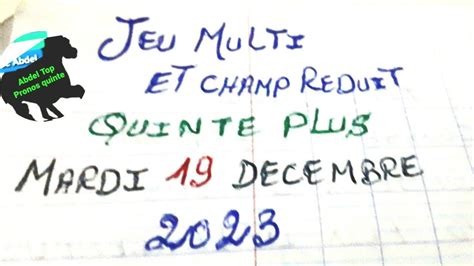 c Abdel
Abdel Top
Pronos quinte
JEU MULTI
ET CHAMP REDUIT
QUINTE PLUS
MARDI 19 DECEMBRE
2023